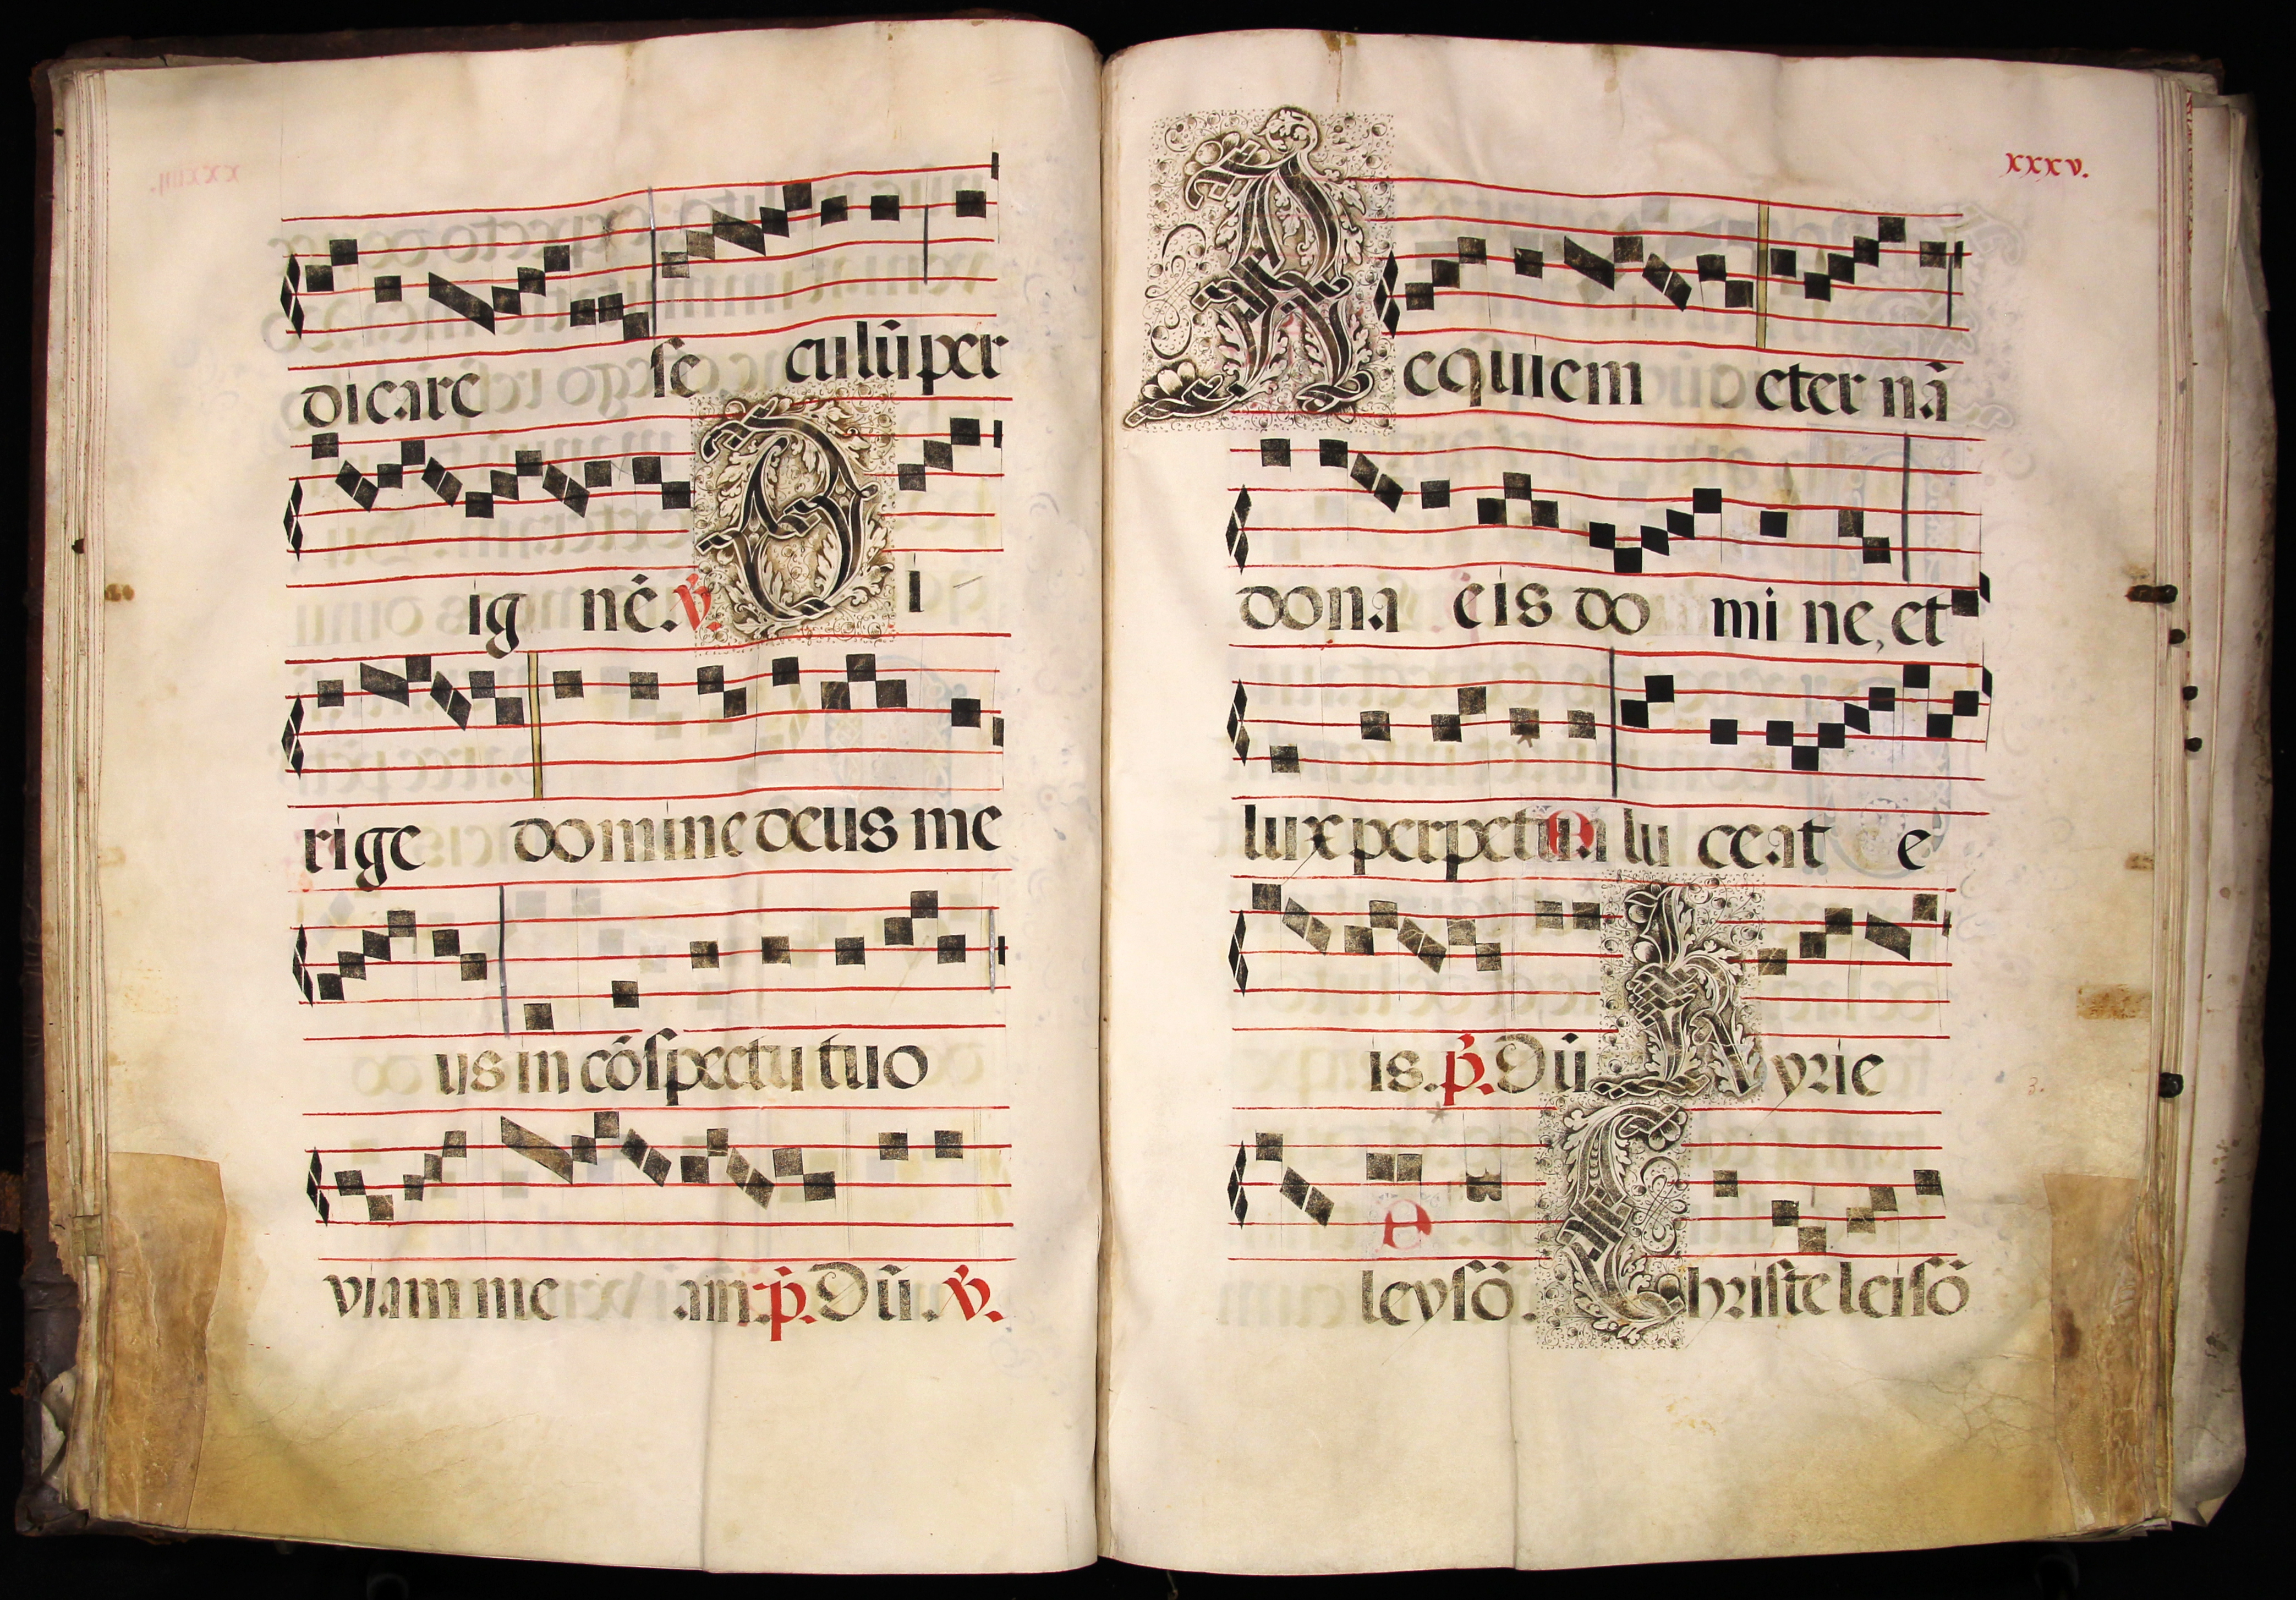 dicare se culũ per
ig nẽ. ℣. D i
rige domine deus me
us in cõſpectu tuo
viam me am. p̃. Dũ. ℣.
xxxv.
R equiem eter nã
dona eis do mi ne, et
lux perpetua lu ceat e
is. p̃. Dũ K yrie
leyſõ. C hriſte leiſõ